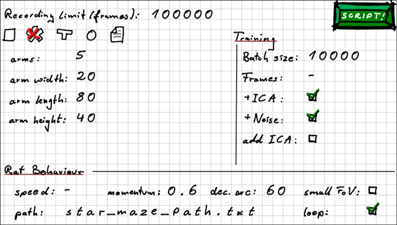 Recording Limit (frames): 100000
SCRIPT!
arms: 5
arm width: 20
arm length: 80
arm height: 40
Training
Batch size: 10000
Frames: -
+ICA:
+Noise:
add ICA:
Rat Behaviour
speed: - momentum: 0.6 dec. arc: 60 small FoV:
path: star_maze_path.txt loop: